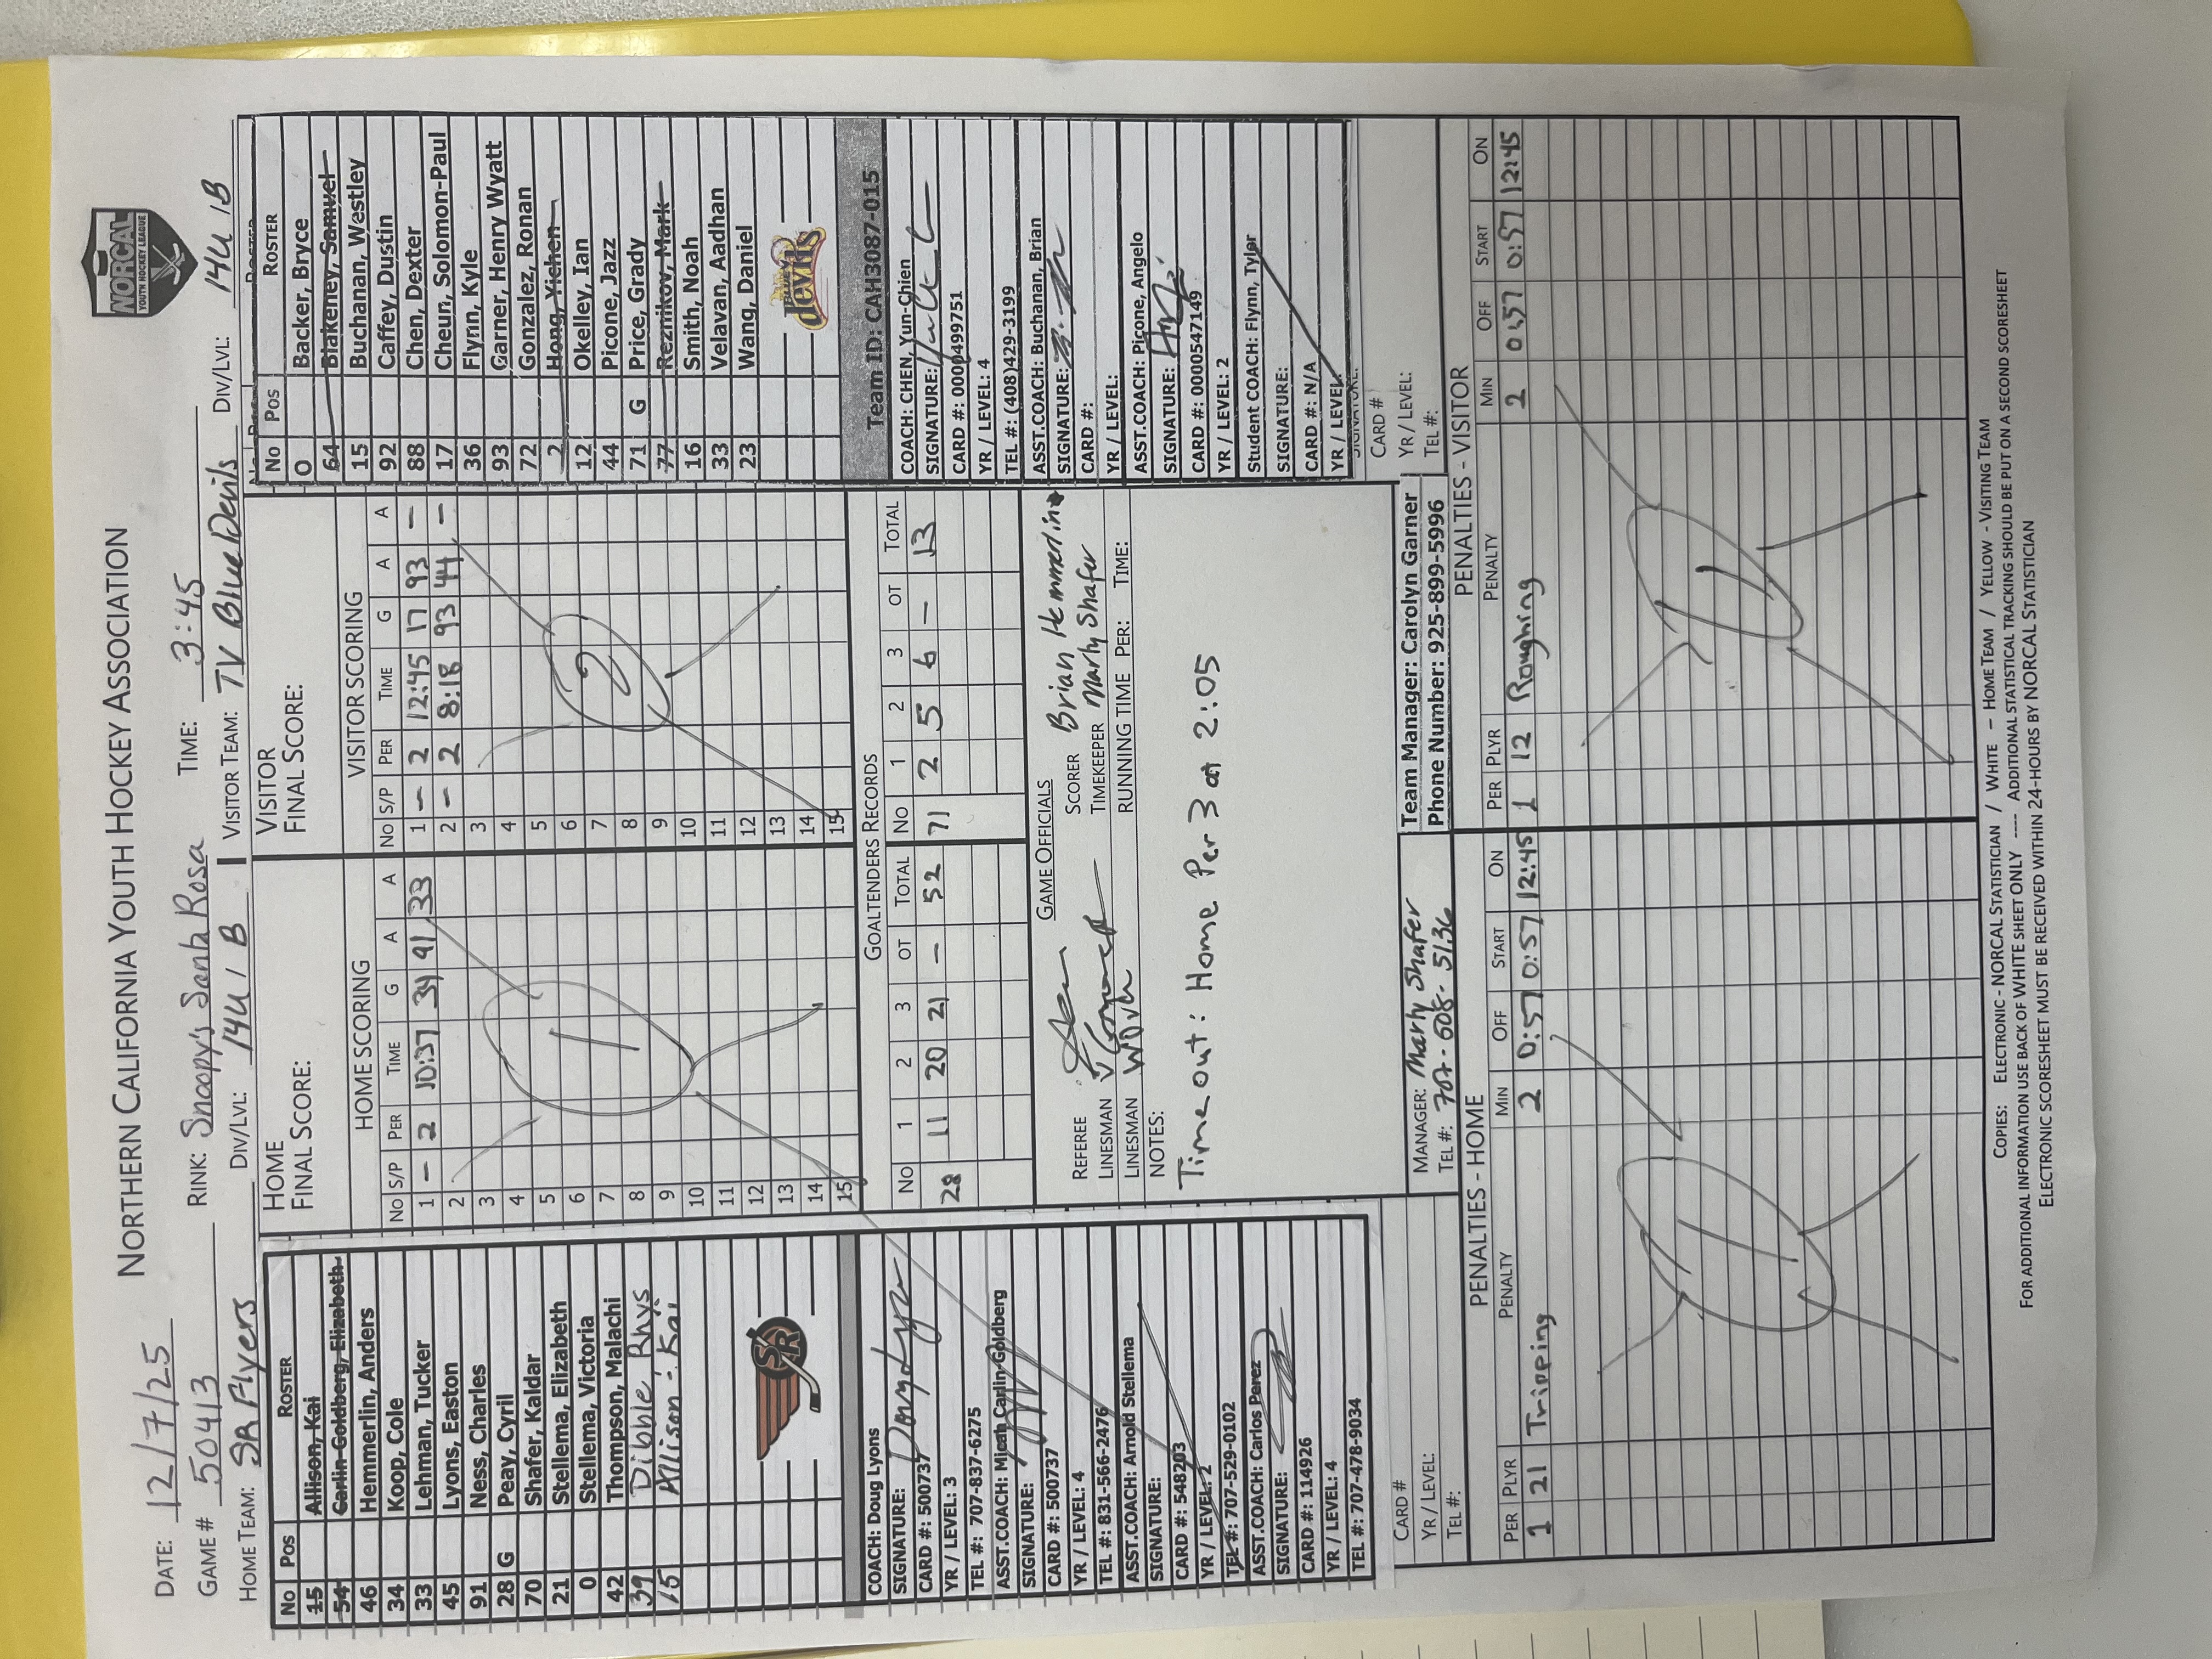 NORTHERN CALIFORNIA YOUTH HOCKEY ASSOCIATION
NORCAL
YOUTH HOCKEY LEAGUE
DATE: 12/7/25
GAME # 50413 RINK: Snoopy's Santa Rosa TIME: 3:45
HOME TEAM: SR Flyers DIV/LVL: 14U 1 B VISITOR TEAM: TV Blue Devils DIV/LVL: 14U 1B
No Pos ROSTER
15 Allison, Kai
54 Carlin-Goldberg, Elizabeth
46 Hemmerlin, Anders
34 Koop, Cole
33 Lehman, Tucker
45 Lyons, Easton
91 Ness, Charles
28 G Peay, Cyril
70 Shafer, Kaldar
21 Stellema, Elizabeth
0 Stellema, Victoria
42 Thompson, Malachi
39 Dibble, Rhys
15 Allison, Kai
SR
COACH: Doug Lyons
SIGNATURE: Doug Lyons
CARD #: 500737
YR / LEVEL: 3
TEL #: 707-837-6275
ASST.COACH: Micah Carlin-Goldberg
SIGNATURE:
CARD #: 500737
YR / LEVEL: 4
TEL #: 831-566-2476
ASST.COACH: Arnold Stellema
SIGNATURE:
CARD #: 548203
YR / LEVEL: 2
TEL #: 707-529-0102
ASST.COACH: Carlos Perez
SIGNATURE:
CARD #: 114926
YR / LEVEL: 4
TEL #: 707-478-9034
CARD #
YR / LEVEL:
TEL #:
HOME
FINAL SCORE:
HOME SCORING
No S/P PER TIME G A A
1 – 2 10:37 34 91 33
2
3
4
5
6
7
8
9
10
11
12
13
14
15
1
VISITOR
FINAL SCORE:
VISITOR SCORING
No S/P PER TIME G A A
1 – 2 12:45 17 93 –
2 – 2 8:18 93 44 –
3
4
5
6
7
8
9
10
11
12
13
14
15
2
GOALTENDERS RECORDS
No 1 2 3 OT TOTAL No 1 2 3 OT TOTAL
28 11 20 21 – 52 71 2 5 6 – 13
GAME OFFICIALS
REFEREE SCORER Brian Hemmerlin
LINESMAN TIMEKEEPER Marly Shafer
LINESMAN RUNNING TIME PER: TIME:
NOTES:
Timeout: Home Per 3 at 2:05
MANAGER: Marly Shafer
TEL #: 707-608-5136
Team Manager: Carolyn Garner
Phone Number: 925-899-5996
No Pos ROSTER
0 Backer, Bryce
64 Blakeney, Samuel
15 Buchanan, Westley
92 Caffey, Dustin
88 Chen, Dexter
17 Cheun, Solomon-Paul
36 Flynn, Kyle
93 Garner, Henry Wyatt
72 Gonzalez, Ronan
2 Hong, Yichen
12 Okelley, Ian
44 Picone, Jazz
71 G Price, Grady
77 Reznikov, Mark
16 Smith, Noah
33 Velavan, Aadhan
23 Wang, Daniel
devils
Team ID: CAH3087-015
COACH: CHEN, Yun-Chien
SIGNATURE:
CARD #: 0000499751
YR / LEVEL: 4
TEL #: (408)429-3199
ASST.COACH: Buchanan, Brian
SIGNATURE:
CARD #:
YR / LEVEL:
ASST.COACH: Picone, Angelo
SIGNATURE:
CARD #: 0000547149
YR / LEVEL: 2
Student COACH: Flynn, Tyler
SIGNATURE:
CARD #: N/A
YR / LEVEL:
SIGNATURE:
CARD #
YR / LEVEL:
TEL #:
PENALTIES - HOME
PER PLYR PENALTY MIN OFF START ON
1 21 Tripping 2 0:57 0:57 12:45
1
PENALTIES - VISITOR
PER PLYR PENALTY MIN OFF START ON
1 12 Roughing 2 0:57 0:57 12:45
1
COPIES: ELECTRONIC - NORCAL STATISTICIAN / WHITE – HOME TEAM / YELLOW - VISITING TEAM
FOR ADDITIONAL INFORMATION USE BACK OF WHITE SHEET ONLY ---- ADDITIONAL STATISTICAL TRACKING SHOULD BE PUT ON A SECOND SCORESHEET
ELECTRONIC SCORESHEET MUST BE RECEIVED WITHIN 24-HOURS BY NORCAL STATISTICIAN